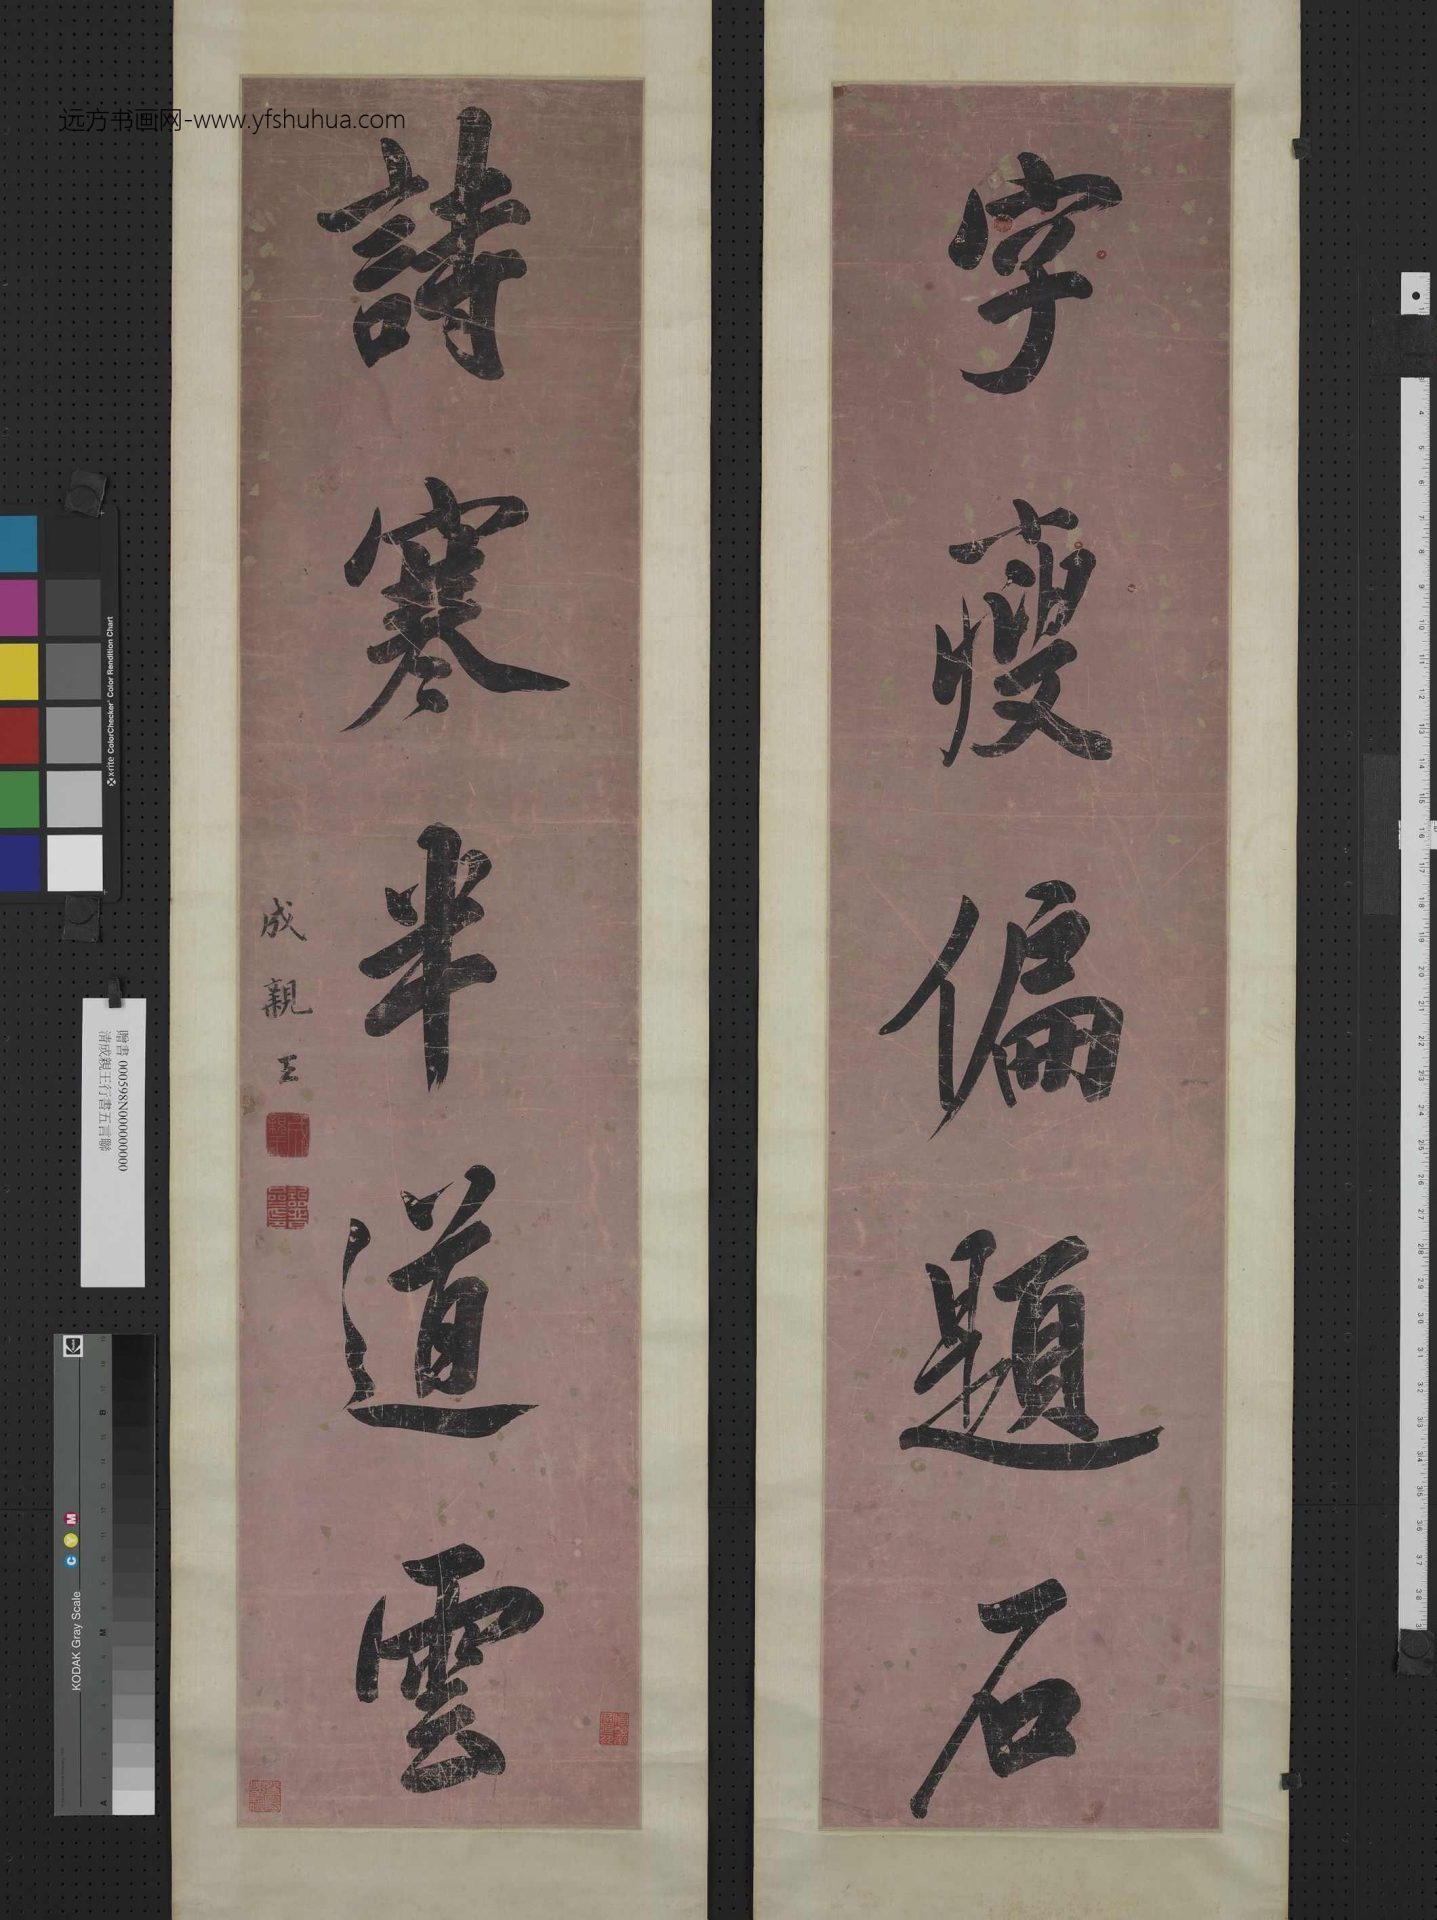 远方书画网-www.yfshuhua.com
字瘦偏題石
詩寒半道雲
成親王
贈書 000598N000000000
清成親王行書五言聯
x-rite ColorChecker Color Rendition Chart
KODAK Gray Scale
C Y M